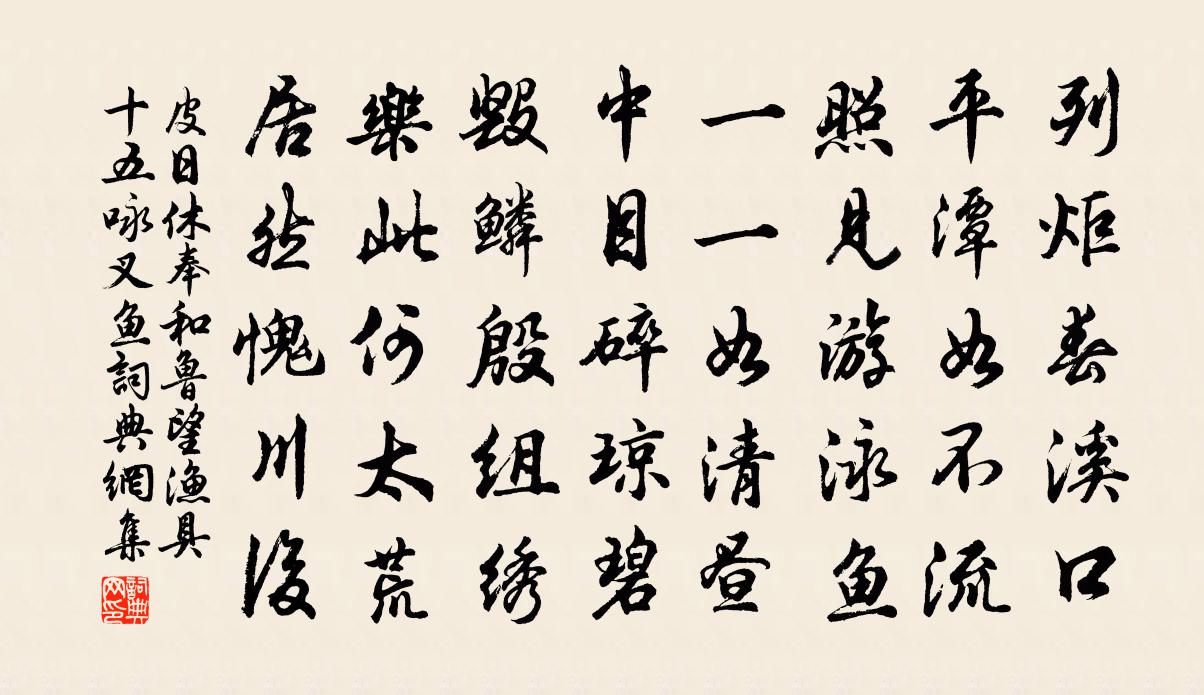 列炬春溪口
平潭如不流
照見游泳鱼
一一如清昼
中目碎琼碧
毁鳞殷组绣
樂此何太荒
居然愧川後
皮日休奉和魯望漁具
十五咏叉鱼詞典網集
詞典網印